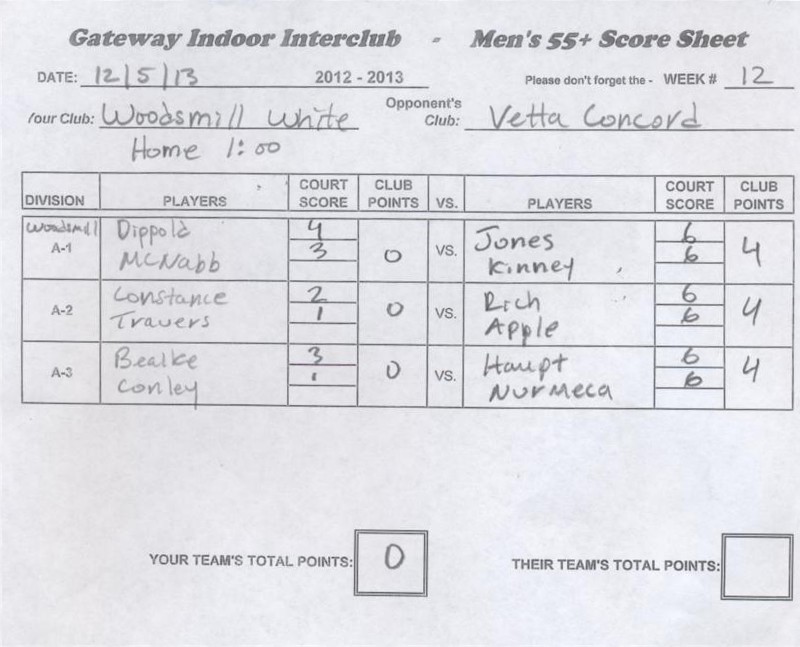 Gateway Indoor Interclub - Men's 55+ Score Sheet
DATE: 12/5/13 2012 - 2013 Please don't forget the - WEEK # 12
Your Club: Woodsmill White Opponent's Club: Vetta Concord
Home 1:00
DIVISION PLAYERS COURT SCORE CLUB POINTS VS. PLAYERS COURT SCORE CLUB POINTS
Woodsmill Dippold 4 Jones 6
A-1 McNabb 3 0 VS. Kinney 6 4
Constance 2 Rich 6
A-2 Travers 1 0 VS. Apple 6 4
Bealke 3 Haupt 6
A-3 Conley 1 0 VS. Nurmeca 6 4
YOUR TEAM'S TOTAL POINTS: 0 THEIR TEAM'S TOTAL POINTS: